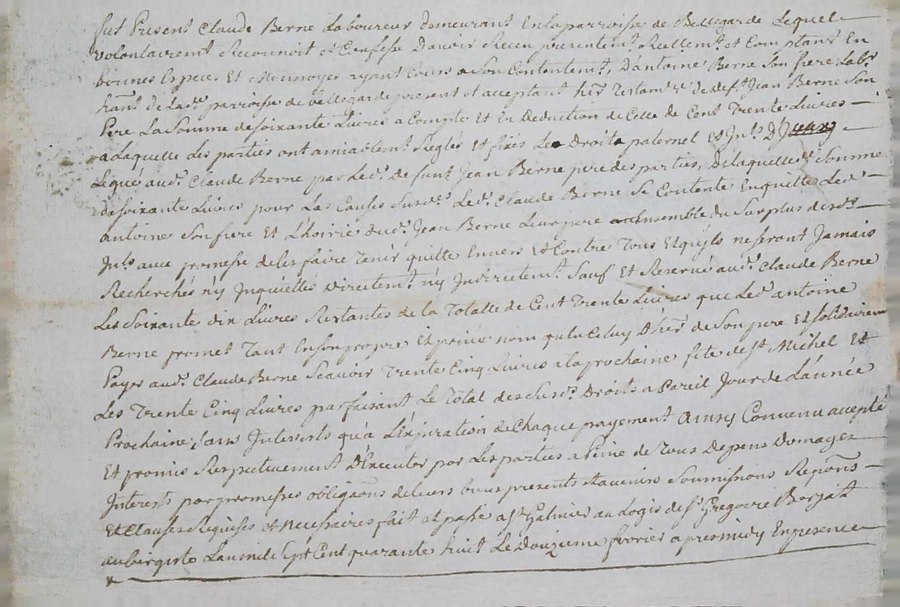 fut Present Claude Berne Laboureur demeurant En la parroisse de Bellegarde Lequel
volontairemt Reconnoit et Confesse D'avoir Receu presentemt Reellemt et Comptant En
bonnes Especes Et Monnoyes ayant Cours a Son Contentemt, D'antoine Berne Son frere Labr
hant de Lade parroisse de bellegarde present et acceptant her Testamre de deft Jean Berne Son
Pere La Somme de soixante Livres a Compte et En Deduction de Celle de Cent Trente Livres
a Laquelle Les parties ont amiablemt Reglés et fixés Les Droits paternel Et
Legué aud. Claude Berne par Led. De funt Jean Berne pere des parties, De laquelle de Somme
de soixante Livres pour Les Causes Susd. Led. Claude Berne Se Contente En quitte Led.
antoine Son frere Et L'hoirie dud. Jean Berne Leur pere Ensemble du Surplus desd.
avec promesse de les faire Tenir quitte Envers Et Contre Tous Et quils ne Seront Jamais
Recherchés n'y Inquiettés Directemt n'y Indirectemt Sauf Et Reservé aud. Claude Berne
Les Soixante dix Livres Restantes de la Totalle de Cent Trente Livres que Led. antoine
Berne promet Tant En son propre Et privé nom qu'en Celuy d'her de Son pere Et Solidairemt
Payer aud. Claude Berne Scavoir Trente Cinq Livres a la prochaine fete de St Michel Et
Les Trente Cinq Livres parfaisant Le Total des Susd. Droits a Pareil Jour de L'année
Prochaine, Sans Interests qu'a L'Expiration de Chaque payement ainsy Convenu accepté
Et promis Respectivement D'Executer par Les parties a Peine de Tous Depens Domages
Interests par promesses obligaons de leurs biens presents Et avenirs Soumissions Renons
Et Clauses Requises et Necessaires fait et passé a St Galmier au Logis de Sr Gregoire Borjat
aubergiste L'an mil Sept Cent quarante huit Le Douzieme fevrier apres midy En presence